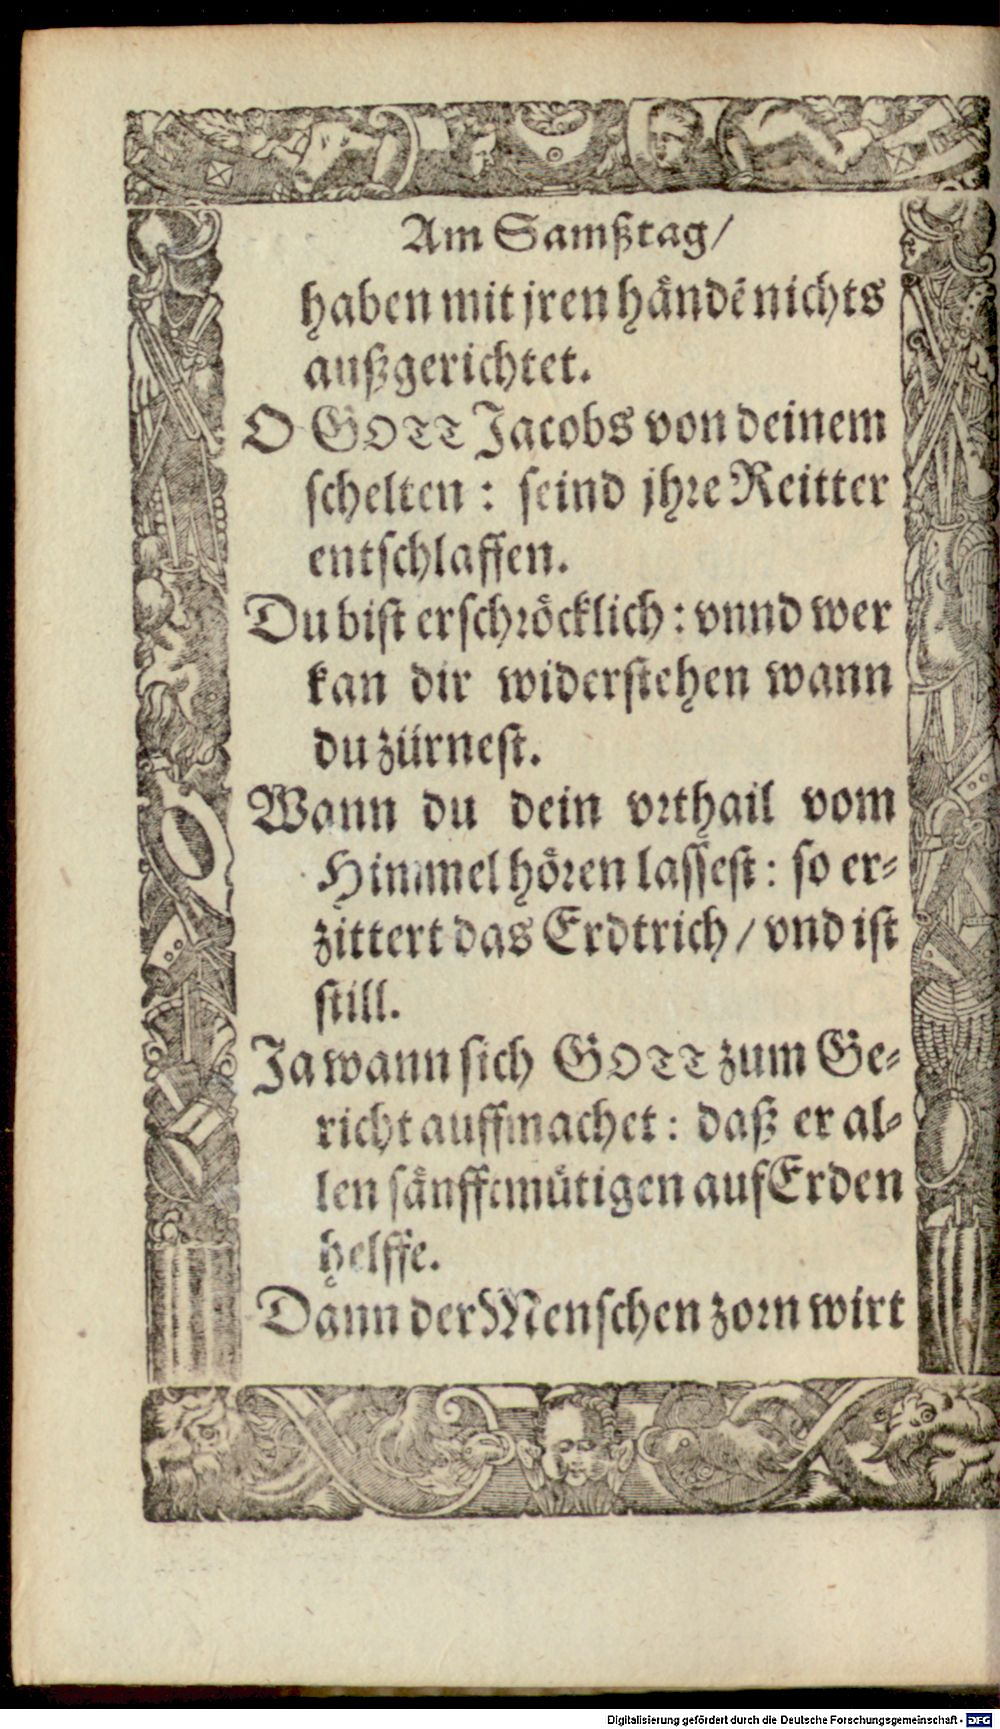 Am Samßtag/
haben mit jren händẽ nichts
außgerichtet.
O GOTT Jacobs von deinem
schelten : seind jhre Reitter
entschlaffen.
Du bist erschröcklich : vnnd wer
kan dir widerstehen wann
du zürnest.
Wann du dein vrthail vom
Himmel hören lassest : so er-
zittert das Erdtrich / vnd ist
still.
Ja wann sich GOTT zum Ge-
richt auffmachet : daß er al-
len sänfftmütigen auf Erden
helffe.
Dann der Menschen zorn wirt
Digitalisierung gefördert durch die Deutsche Forschungsgemeinschaft - DFG